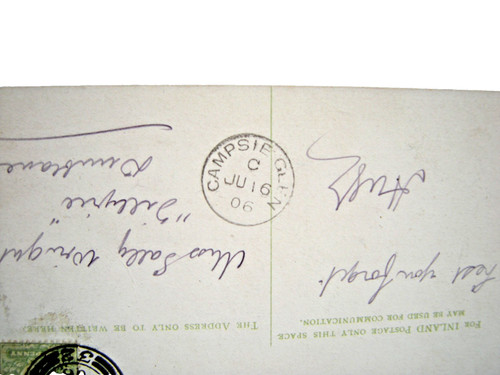 FOR INLAND POSTAGE ONLY THIS SPACE
MAY BE USED FOR COMMUNICATION.
Lest you forget
THE ADDRESS ONLY TO BE WRITTEN HERE.
Miss Sally Wright
"Tillyrie"
Dunblane
CAMPSIE GLEN
JU 16
06
PENNY